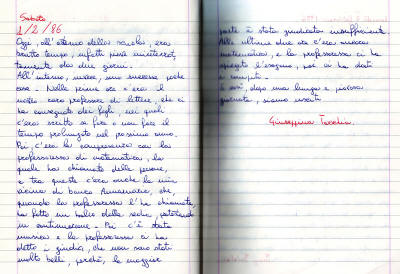 Sabato
1/2/86
Oggi, all'esterno della scuola, era
brutto tempo, infatti piove ininterrot,
tamente da due giorni.
All'interno, invece, sono successe poche
cose. Nella prima ora c'era il
nostro caro professore di lettere, che ci
ha consegnato dei fogli, nei quali
c'era scritto se fare o non fare il
tempo prolungato nel prossimo anno.
Poi, c'era la compresenza con la
professoressa di matematica, la
quale ha chiamato delle persone,
e tra queste c'era anche la mia
vicina di banco Annamaria, che,
quando la professoressa l'ha chiamata,
ha fatto un balzo dalla sedia,
in continuazione. Poi c'è stata
musica e la professoressa ci ha
detto i giudizi, che non sono stati
molto belli, perché, la maggior
parte è stata giudicata insufficiente.
Alle ultime due ore c'era ancora
matematica, e la professoressa ci ha
spiegato l'esagono, poi ci ha dati
i compiti.
E così, dopo una lunga e piovosa
giornata, siamo usciti.
Giuseppina